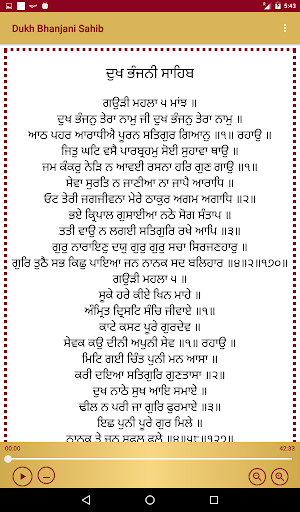 5:43
Dukh Bhanjani Sahib
ਦੁਖ ਭੰਜਨੀ ਸਾਹਿਬ
ਗਉੜੀ ਮਹਲਾ ੫ ਮਾਂਝ ॥
ਦੁਖ ਭੰਜਨੁ ਤੇਰਾ ਨਾਮੁ ਜੀ ਦੁਖ ਭੰਜਨੁ ਤੇਰਾ ਨਾਮੁ ॥
ਆਠ ਪਹਰ ਆਰਾਧੀਐ ਪੂਰਨ ਸਤਿਗੁਰ ਗਿਆਨੁ ॥੧॥ ਰਹਾਉ ॥
ਜਿਤੁ ਘਟਿ ਵਸੈ ਪਾਰਬ੍ਰਹਮੁ ਸੋਈ ਸੁਹਾਵਾ ਥਾਉ ॥
ਜਮ ਕੰਕਰੁ ਨੇੜਿ ਨ ਆਵਈ ਰਸਨਾ ਹਰਿ ਗੁਣ ਗਾਉ ॥੧॥
ਸੇਵਾ ਸੁਰਤਿ ਨ ਜਾਣੀਆ ਨਾ ਜਾਪੈ ਆਰਾਧਿ ॥
ਓਟ ਤੇਰੀ ਜਗਜੀਵਨਾ ਮੇਰੇ ਠਾਕੁਰ ਅਗਮ ਅਗਾਧਿ ॥੨॥
ਭਏ ਕ੍ਰਿਪਾਲ ਗੁਸਾਈਆ ਨਠੇ ਸੋਗ ਸੰਤਾਪ ॥
ਤਤੀ ਵਾਉ ਨ ਲਗਈ ਸਤਿਗੁਰਿ ਰਖੇ ਆਪਿ ॥
ਗੁਰੁ ਨਾਰਾਇਣੁ ਦਯੁ ਗੁਰੁ ਗੁਰੁ ਸਚਾ ਸਿਰਜਣਹਾਰੁ ॥
ਗੁਰਿ ਤੁਠੈ ਸਭ ਕਿਛੁ ਪਾਇਆ ਜਨ ਨਾਨਕ ਸਦ ਬਲਿਹਾਰ ॥੪॥੨॥੧੭੦॥
ਗਉੜੀ ਮਹਲਾ ੫ ॥
ਸੂਕੇ ਹਰੇ ਕੀਏ ਖਿਨ ਮਾਹੇ ॥
ਅੰਮ੍ਰਿਤ ਦ੍ਰਿਸਟਿ ਸੰਚਿ ਜੀਵਾਏ ॥੧॥
ਕਾਟੇ ਕਸਟ ਪੂਰੇ ਗੁਰਦੇਵ ॥
ਸੇਵਕ ਕਉ ਦੀਨੀ ਅਪੁਨੀ ਸੇਵ ॥੧॥ ਰਹਾਉ ॥
ਮਿਟਿ ਗਈ ਚਿੰਤ ਪੁਨੀ ਮਨ ਆਸਾ ॥
ਕਰੀ ਦਇਆ ਸਤਿਗੁਰਿ ਗੁਣਤਾਸਾ ॥੨॥
ਦੁਖ ਨਾਠੇ ਸੁਖ ਆਇ ਸਮਾਏ ॥
ਢੀਲ ਨ ਪਰੀ ਜਾ ਗੁਰਿ ਫੁਰਮਾਏ ॥੩॥
ਇਛ ਪੁਨੀ ਪੂਰੇ ਗੁਰ ਮਿਲੇ ॥
ਨਾਨਕ ਤੇ ਜਨ ਸੁਫਲ ਫਲੇ ॥੪॥੫੮॥੧੨੭॥
00:00 42:33